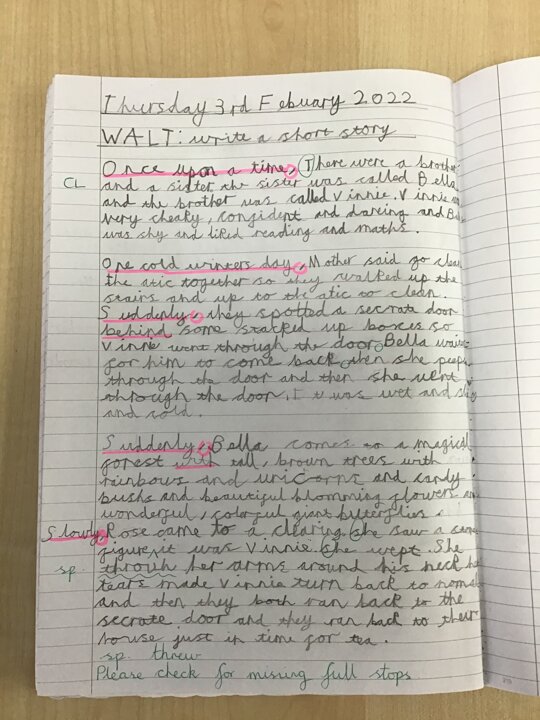 Thursday 3rd Febuary 2022
WALT: write a short story
Once upon a time, There were a brother
CL
and a sister the sister was called Bella
and the brother was called Vinnie. Vinnie
very cheaky, congident and darcing and
was shy and liked reading and maths.
One cold winters day, Mother said go clean
the atic together so they walked up the
stairs and up to the atic to clean.
Suddenly, they spotted a secrate door
behind some stacked up boxes so
Vinnie went through the door. Bella
for him to come back then she
through the door and then she went
through the door, It was wet and
and cold.
Suddenly, Bella comes to a magical
forest with tall, brown trees with
rainbows and unicorns and candy
bushs and beautiful blomming flowers
wonderful, colorful giant butterflies.
Slowly, Rose came to a clearing she saw a
figure, it was Vinnie she wept. She
sp.
throuh her arms around his neck
tears made Vinnie turn back to
and then they both ran back to the
secrate door and they ran back to their
house just in time for tea.
sp. threw
Please check for missing full stops